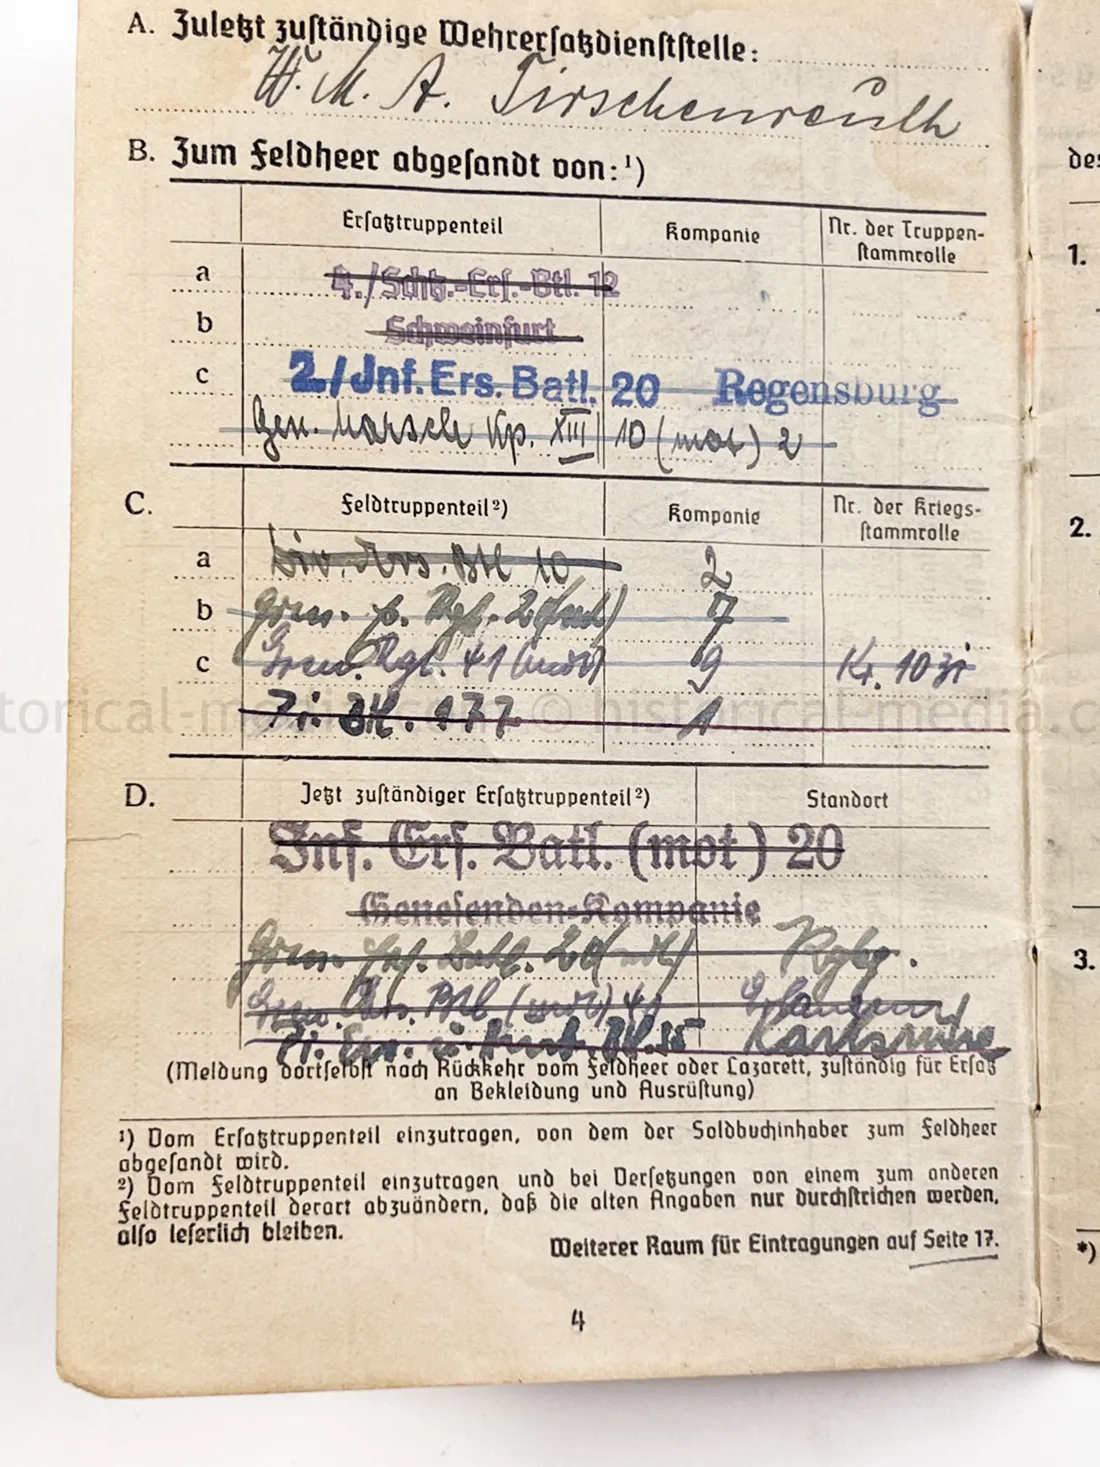 A. Zuletzt zuständige Wehrersatzdienststelle:
W. M. A. Tirschenreuth
B. Zum Feldheer abgesandt von:¹)
Ersatztruppenteil Kompanie Nr. der Truppen-
stammrolle
a 4./Schtz.-Ers.-Btl. 12
b Schweinfurt
c 2./Inf. Ers. Batl. 20 Regensburg
Gen. Marsch Kp. XIII 10 (mot) 2
C. Feldtruppenteil²) Kompanie Nr. der Kriegs-
stammrolle
a Div. Btl 10 2
b Gren. Rgt. 20 7
c Gren. Rgt. 41 (mot) 9 Kr. 10
Pi. Btl. 177 1
D. Jetzt zuständiger Ersatztruppenteil²) Standort
Inf. Ers. Batl. (mot) 20
Genesenden-Kompanie
Gren. Batl. 20 Rgbg.
Gren. Ers. Btl (mot) 41
Pi. Ers. u. Btl. 35 Karlsruhe
(Meldung dortselbst nach Rückkehr vom Feldheer oder Lazarett, zuständig für Ersatz
an Bekleidung und Ausrüstung)
¹) Vom Ersatztruppenteil einzutragen, von dem der Soldbuchinhaber zum Feldheer
abgesandt wird.
²) Vom Feldtruppenteil einzutragen und bei Versetzungen von einem zum anderen
Feldtruppenteil derart abzuändern, daß die alten Angaben nur durchstrichen werden,
also leserlich bleiben.
Weiterer Raum für Eintragungen auf Seite 17.
4
1.
2.
3.
*)
© historical-media.c